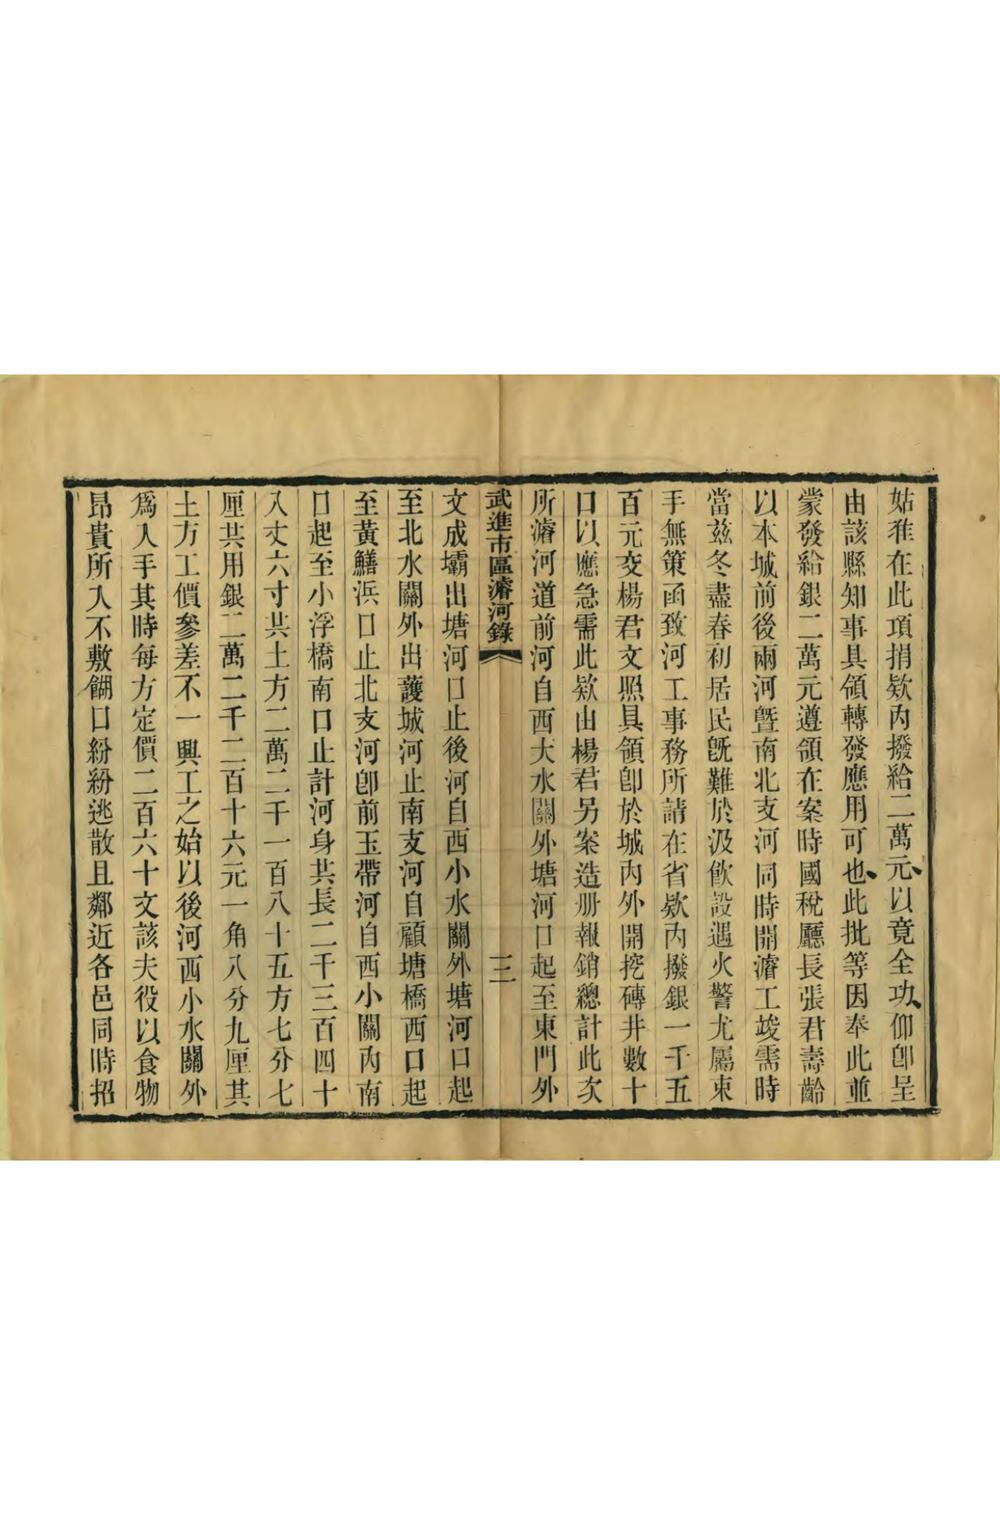 姑准在此項捐欵內撥給二萬元以竟全功仰卽呈
由該縣知事具領轉發應用可也此批等因奉此並
蒙發給銀二萬元遵領在案時國稅廳長張君壽齡
以本城前後兩河曁南北支河同時開濬工竣需時
當茲冬盡春初居民旣難於汲飲設遇火警尤屬束
手無策函致河工事務所請在省欵內撥銀一千五
百元交楊君文照具領卽於城內外開挖磚井數十
口以應急需此欵由楊君另案造册報銷總計此次
所濬河道前河自西大水關外塘河口起至東門外
武進市區濬河錄 三
文成壩出塘河口止後河自西小水關外塘河口起
至北水關外出護城河止南支河自顧塘橋西口起
至黃鱔浜口止北支河卽前玉帶河自西小關內南
口起至小浮橋南口止計河身共長二千三百四十
八丈六寸共土方二萬二千一百八十五方七分七
厘共用銀二萬二千二百十六元一角八分九厘其
土方工價參差不一興工之始以後河西小水關外
爲入手其時每方定價二百六十文該夫役以食物
昂貴所入不敷餬口紛紛逃散且鄰近各邑同時招